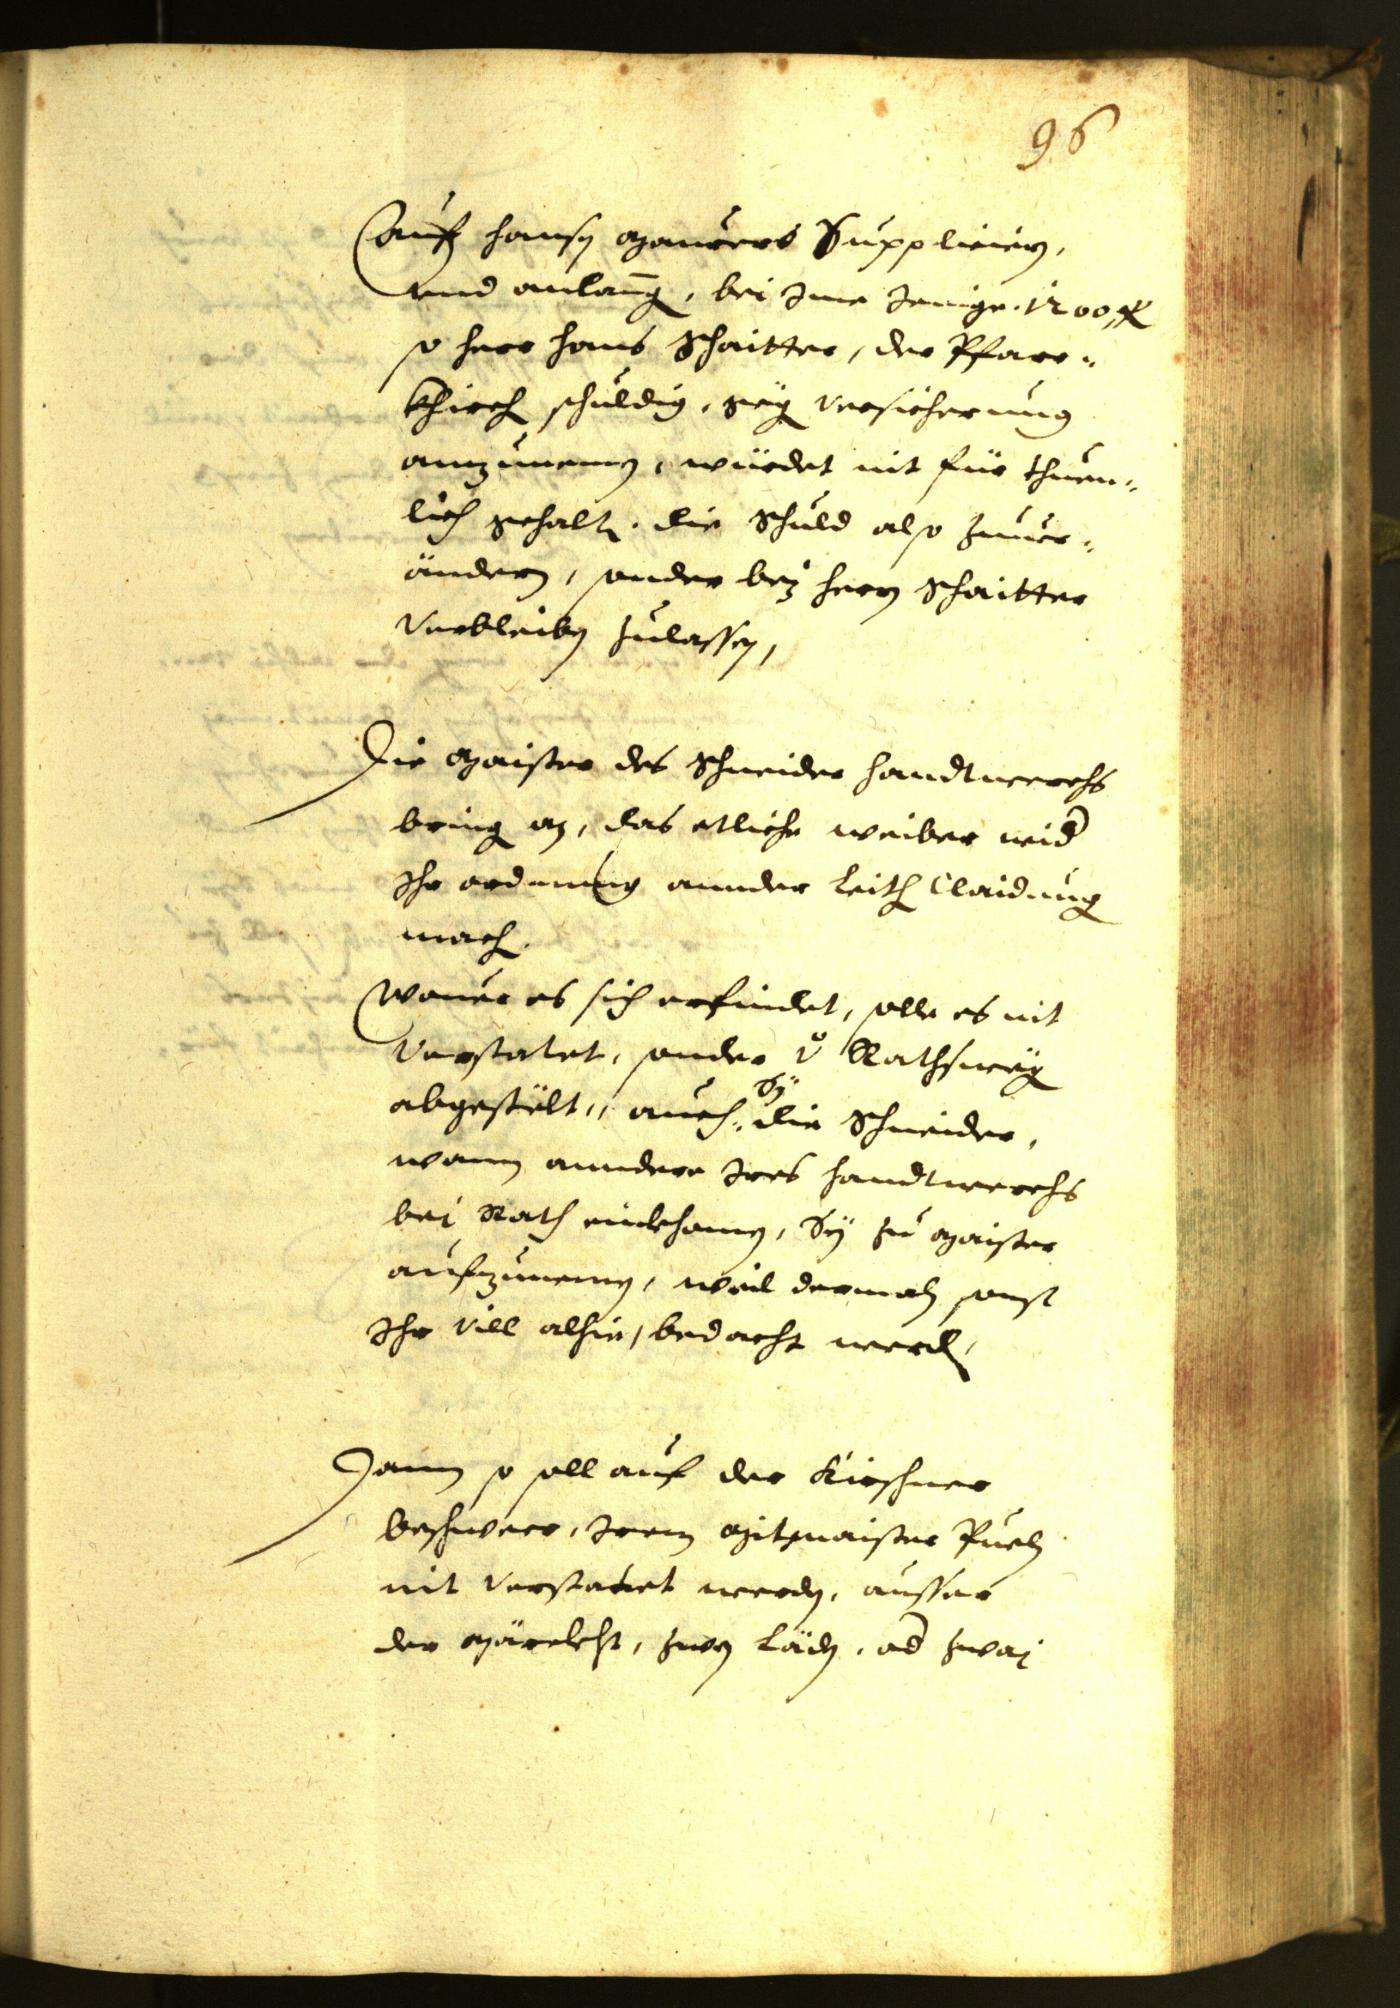 96
Auf Hansn Maurers Suppliciern,
vnd anlang, bei Ime Jenige 1200 fl
so herr Hans Schaitter, der Pfarr„
khirch schuldig, gegn versicherung
anzunemen, würdet nit für thuen„
lich gehaltn die Schuld also zuuer„
ändern, sonder bey hern Schaitter
verbleiben zulassen,
Die Maister des Schneider handtwerchs
bringn an, das etliche weiber wider
Ihr ordnung annder Leith Claidung
machn.
Wouer es sich erfindet, solle es nit
verstatet, sonder vo Rathswegn
abgestölt„ auch„ Sy die Schneider,
wann anndere Ires handtwerchs
bei Rath einkhomen, Sy zu Maister
aufzunemen, weil dermaln sonst
Ihr vill alhie, bedacht werdn,
Dann so soll auf der Kirschner
beschwer, Irem Mitmaister Pueln
nit verstatet werden, ausser
der Märckht, zwen Läden, oder zwaj